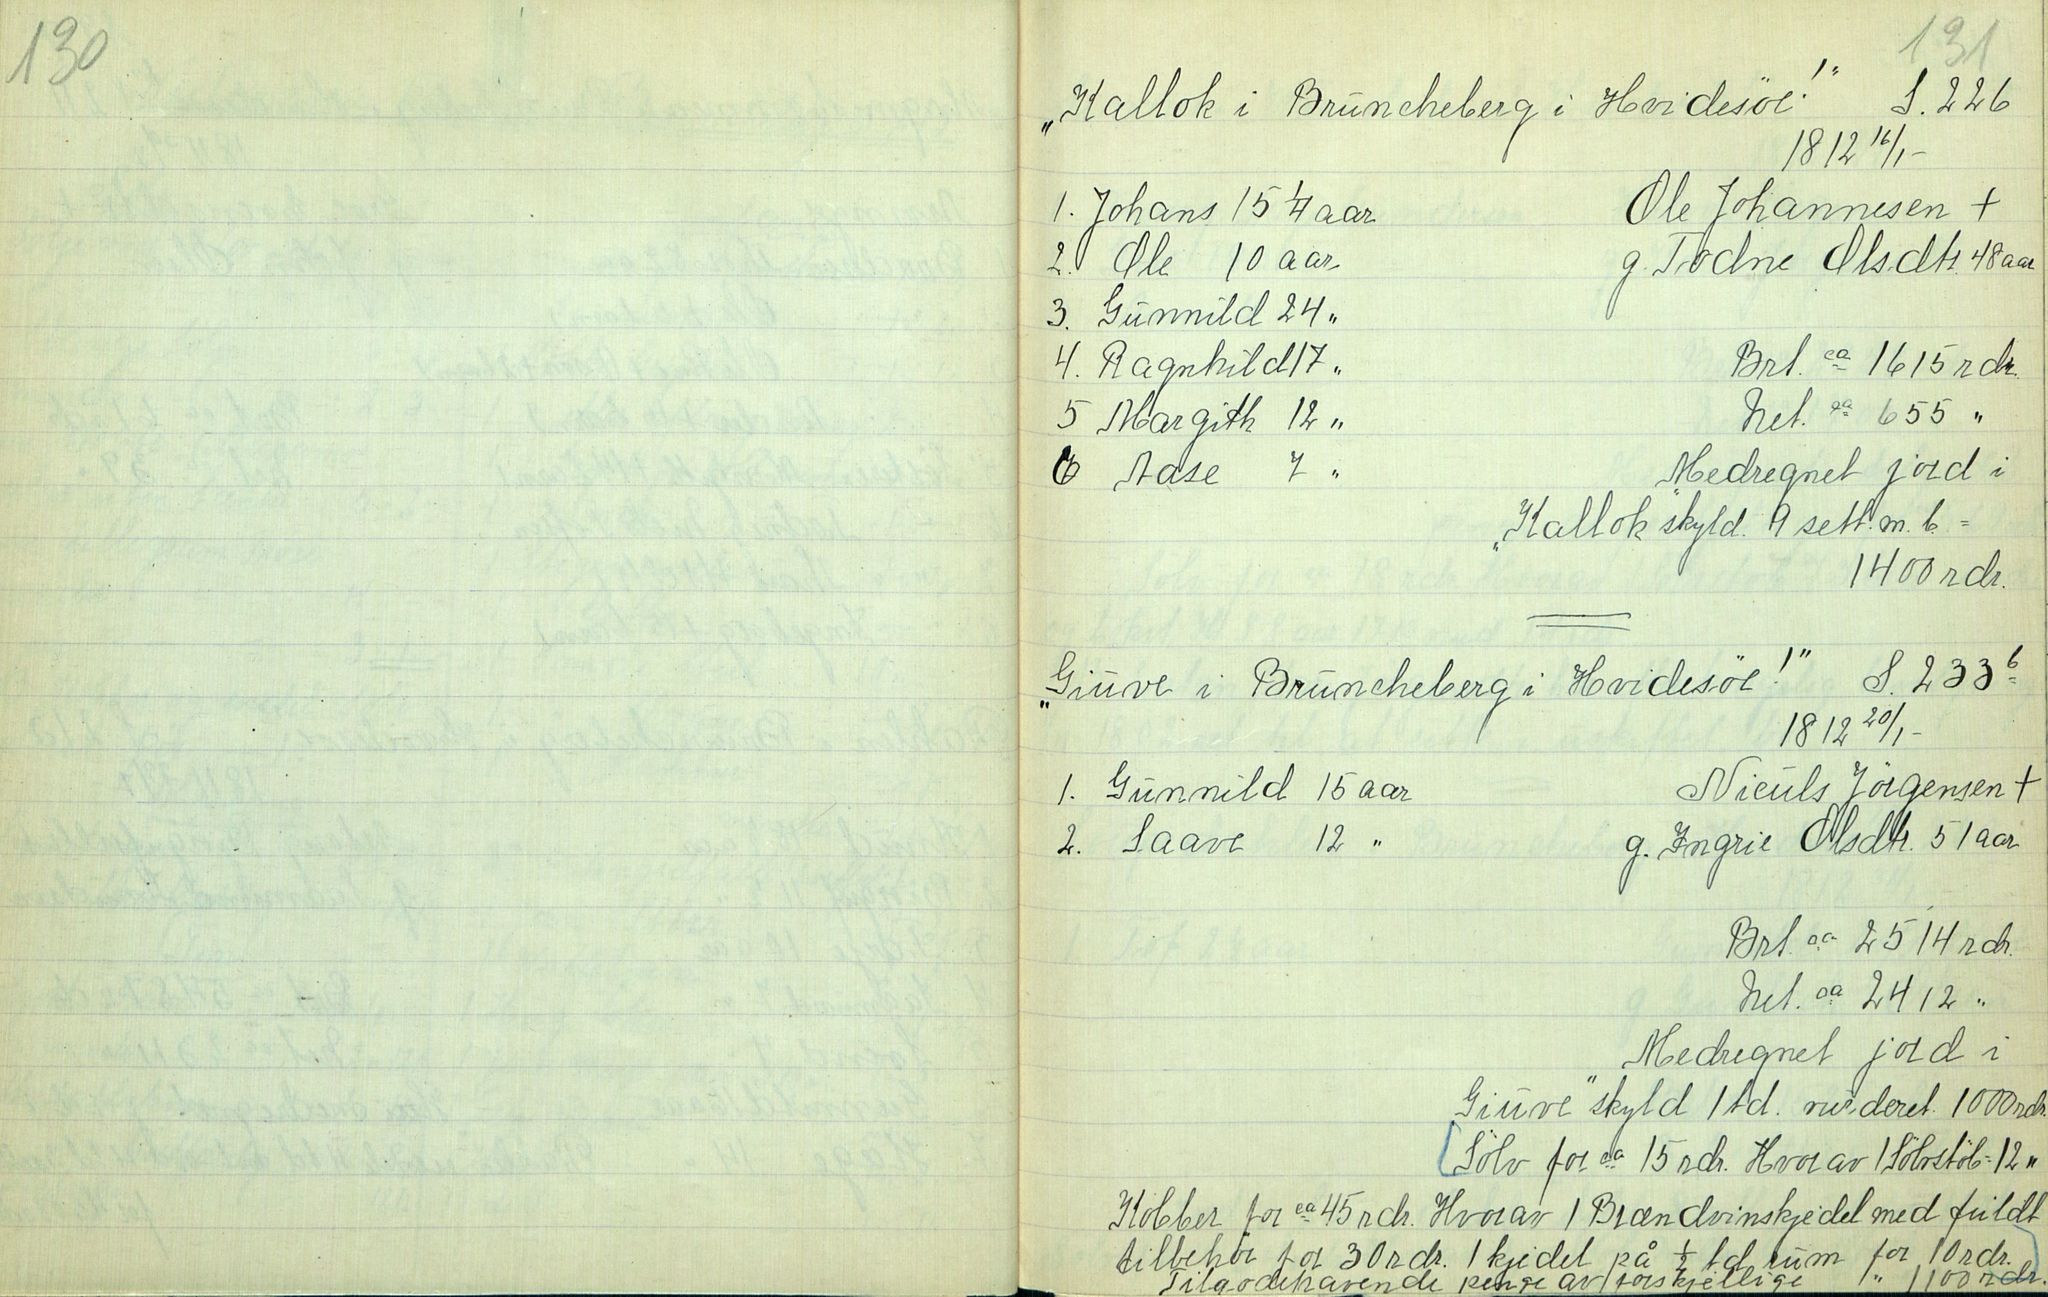 130
131
„Kallok i Brüncheberg i Hvidesöe!" S. 226
1812 16/1-
1. Johans 15 1/4 aar Ole Johannesen +
2. Ole 10 aar g. Todne Olsdtr. 48 aar
3. Gunnild 24 „
4. Ragnhild 17 „ Brt. ca 1615 rdr.
5 Margith 12 „ Net. ca 655 "
6 Aase 7 „ Medregnet jord i
„Kallok" skyld. 9 sett. m. b. =
1400 rdr.
„Giüve i Brüncheberg i Hvidesöe!" S. 233 b
1812 20/1-
1. Günnild 15 aar Niculs Jörgensen +
2. Saave 12 " g. Ingrie Olsdtr. 51 aar
Brt. ca 2514 rdr.
Net. ca 2412 "
Medregnet jord i
Giüve" skyld 1 td. vurderet 1000 rdr.
Sölv for ca 15 rdr. Hvorav 1 Sölvstöb = 12 "
Kobber for ca 45 rdr. Hvorav 1 Brændvinskjedel med fuldt
tilbehör for 30 rdr. 1 kjedel på 1/2 td. rum for 10 rdr.
Tilgodehavende penge av forskjellige " 1100 rdr.